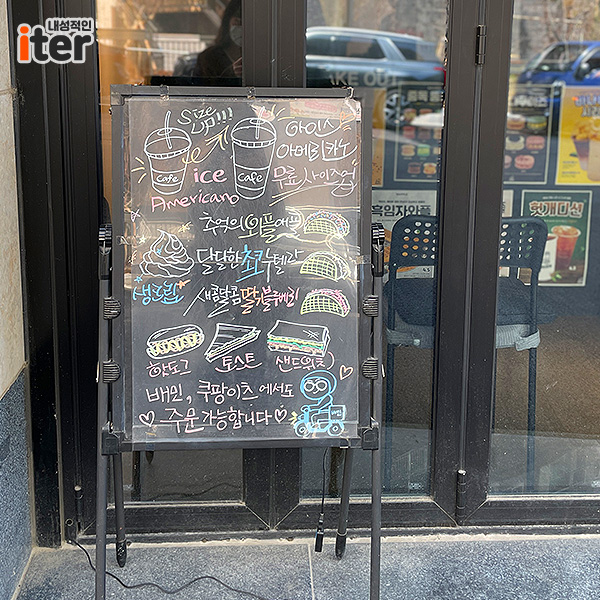 내성적인
iter
TAKE OUT
Size
UP!!!
아이스
아메리카노
무료 사이즈업
Cafe
Cafe
ice
Americano
추억의
달달한 초코누텔라
생크림
새콤달콤 딸기, 블루베리
핫도그
토스트
샌드위치
배민, 쿠팡이츠에서도
주문가능합니다
흑임자와플
핫개미션